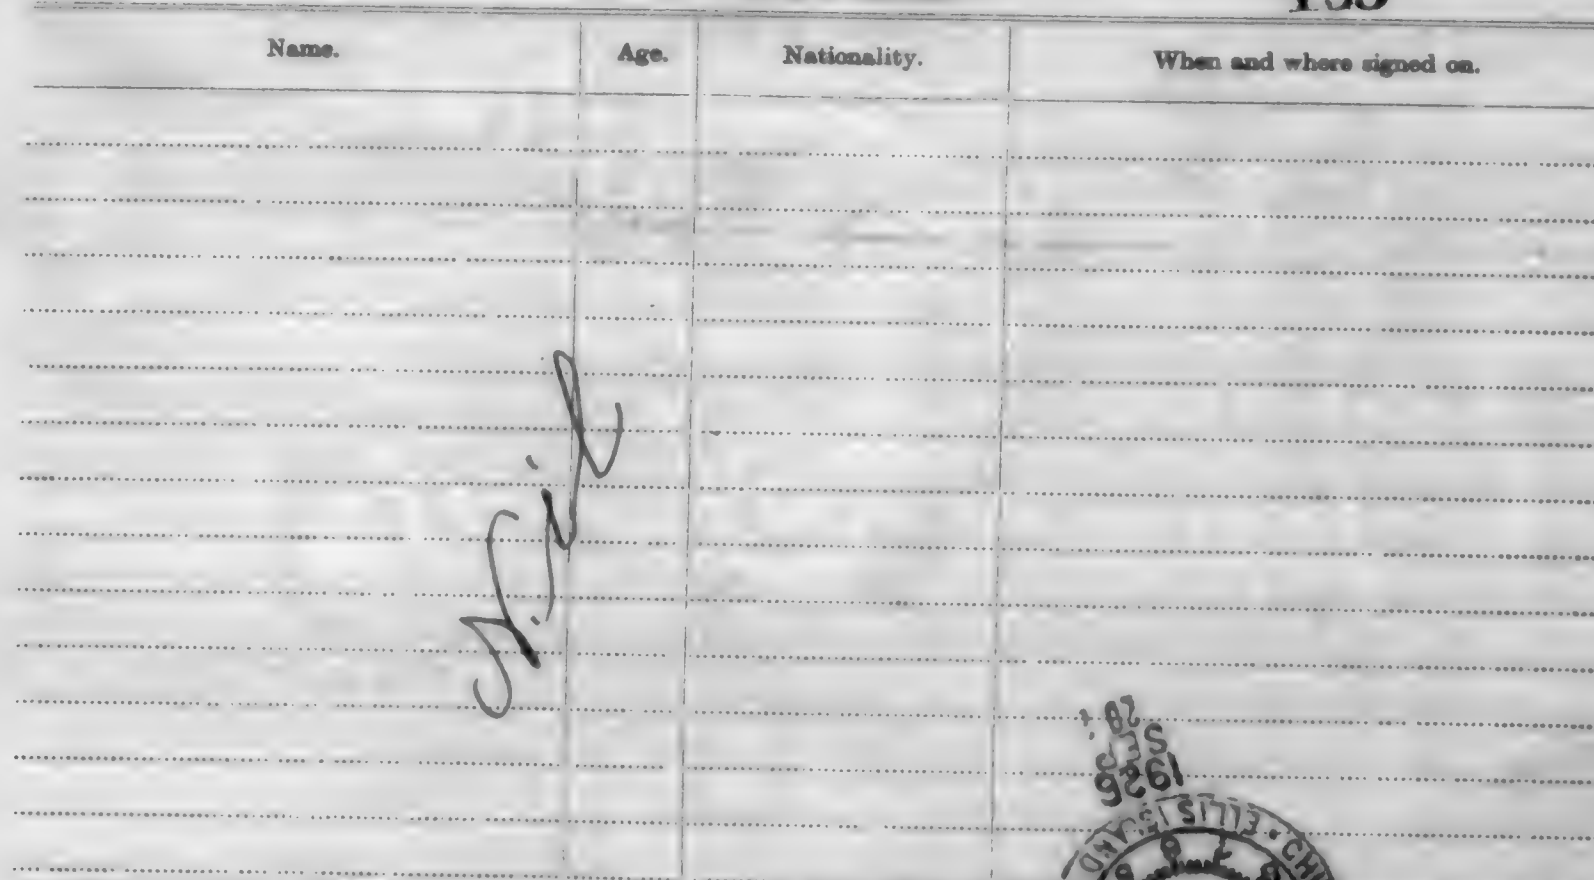 Name. Age. Nationality. When and where signed on.
Nil
28
SEP
1926
ELLIS ISLAND